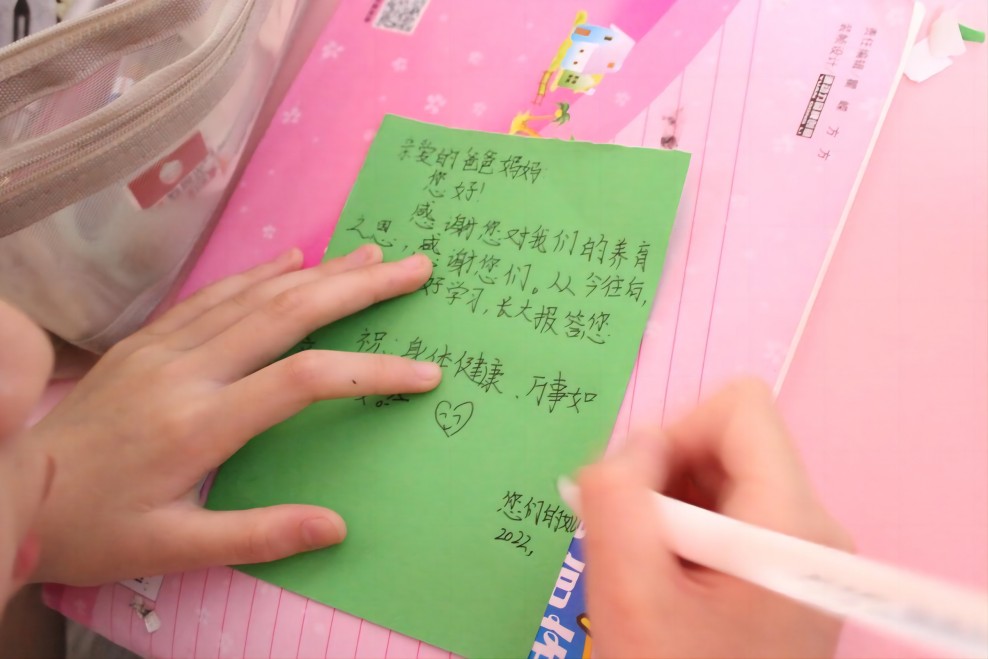 亲爱的爸爸妈妈
您好!
感谢您对我们的养育
之恩,感谢您们。从今往后,
好学习,长大报答您
祝:身体健康.万事如
您们的
2022,
责任编辑 方
装帧设计 方